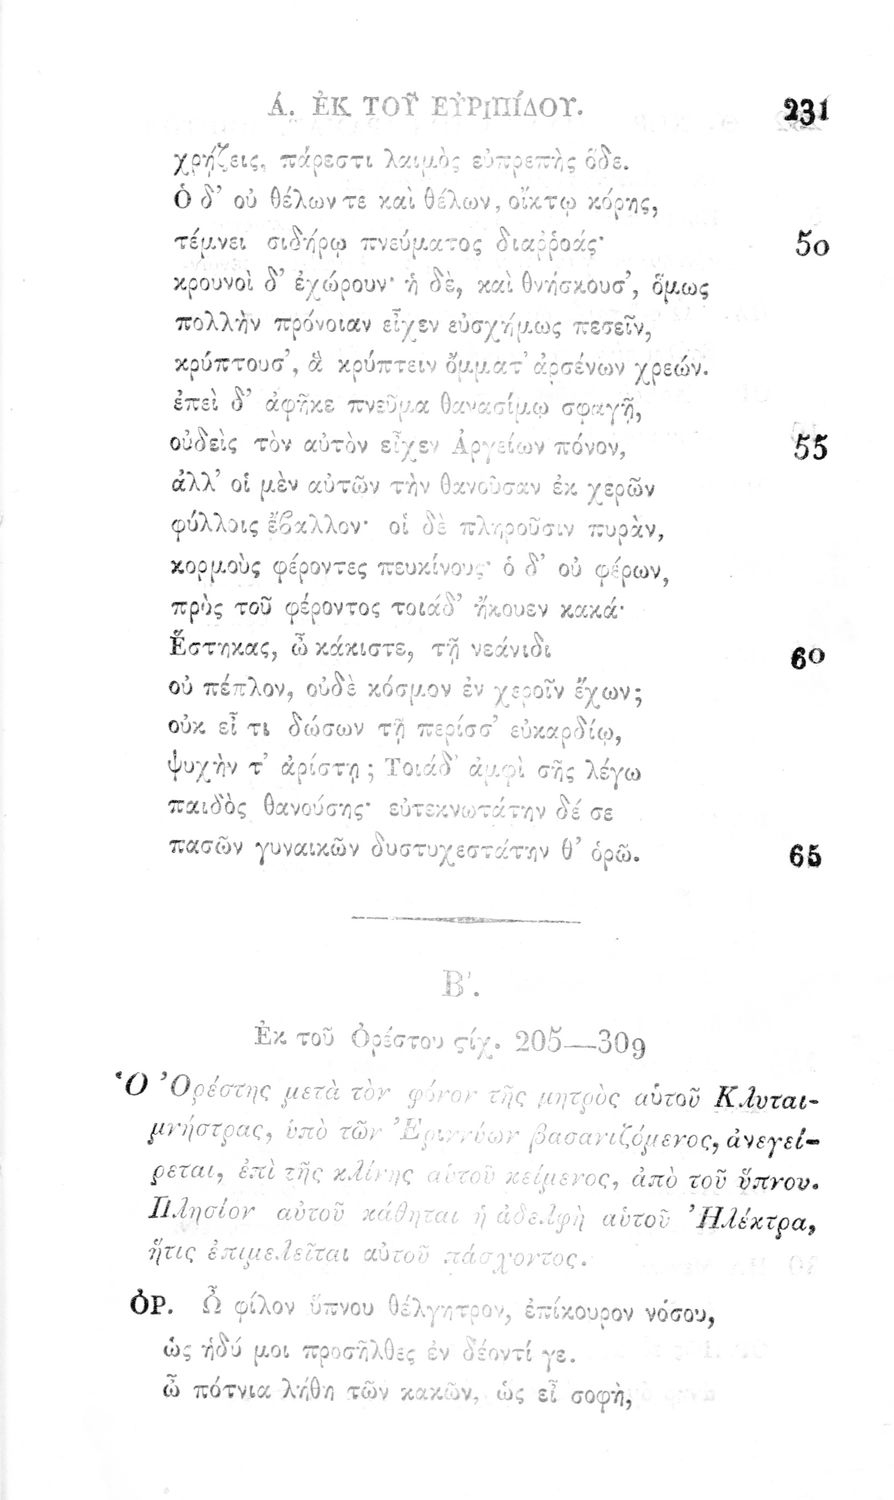 Ἀ. ἘΚ ΤΟΥ͂ ΕΥ̓ΡΙΠΊΔΟΥ. 231
χρῄζεις, πάρεστι λαιμὸς εὐπρεπὴς ὅδε.
Ὁ δ’ οὐ θέλων τε καὶ θέλων, οἴκτῳ κόρης,
τέμνει σιδήρῳ πνεύματος διαῤῥοάς· 50
κρουνοὶ δ’ ἐχώρουν· ἡ δὲ, καὶ θνήσκουσ’, ὅμως
πολλὴν πρόνοιαν εἶχεν εὐσχήμως πεσεῖν,
κρύπτουσ’, ἃ κρύπτειν ὄμματ’ ἀρσένων χρεών.
ἐπεὶ δ’ ἀφῆκε πνεῦμα θανασίμῳ σφαγῇ,
οὐδεὶς τὸν αὐτὸν εἶχεν Ἀργείων πόνον, 55
ἀλλ’ οἱ μὲν αὐτῶν τὴν θανοῦσαν ἐκ χερῶν
φύλλοις ἔβαλλον· οἱ δὲ πληροῦσιν πυρὰν,
κορμοὺς φέροντες πευκίνους· ὁ δ’ οὐ φέρων,
πρὸς τοῦ φέροντος τοιάδ’ ἤκουεν κακά·
Ἕστηκας, ὦ κάκιστε, τῇ νεάνιδι 60
οὐ πέπλον, οὐδὲ κόσμον ἐν χεροῖν ἔχων;
οὐκ εἶ τι δώσων τῇ περίσσ’ εὐκαρδίῳ,
ψυχὴν τ’ ἀρίστῃ; Τοιάδ’ ἀμφὶ σῆς λέγω
παιδὸς θανούσης· εὐτεκνωτάτην δέ σε
πασῶν γυναικῶν δυστυχεστάτην θ’ ὁρῶ. 65
Β'.
Ἐκ τοῦ Ὀρέστου ϛίχ. 205—309
Ὁ Ὀρέστης μετὰ τὸν φόνον τῆς μητρὸς αὑτοῦ Κλυται-
μνήστρας, ὑπὸ τῶν Ἐριννύων βασανιζόμενος, ἀνεγεί-
ρεται, ἐπὶ τῆς κλίνης αὑτοῦ κείμενος, ἀπὸ τοῦ ὕπνου.
Πλησίον αὐτοῦ κάθηται ἡ ἀδελφὴ αὑτοῦ Ἠλέκτρα,
ἥτις ἐπιμελεῖται αὐτοῦ πάσχοντος.
ὈΡ. Ὦ φίλον ὕπνου θέλγητρον, ἐπίκουρον νόσου,
ὡς ἡδύ μοι προσῆλθες ἐν δέοντί γε.
ὦ πότνια λήθη τῶν κακῶν, ὡς εἶ σοφὴ,